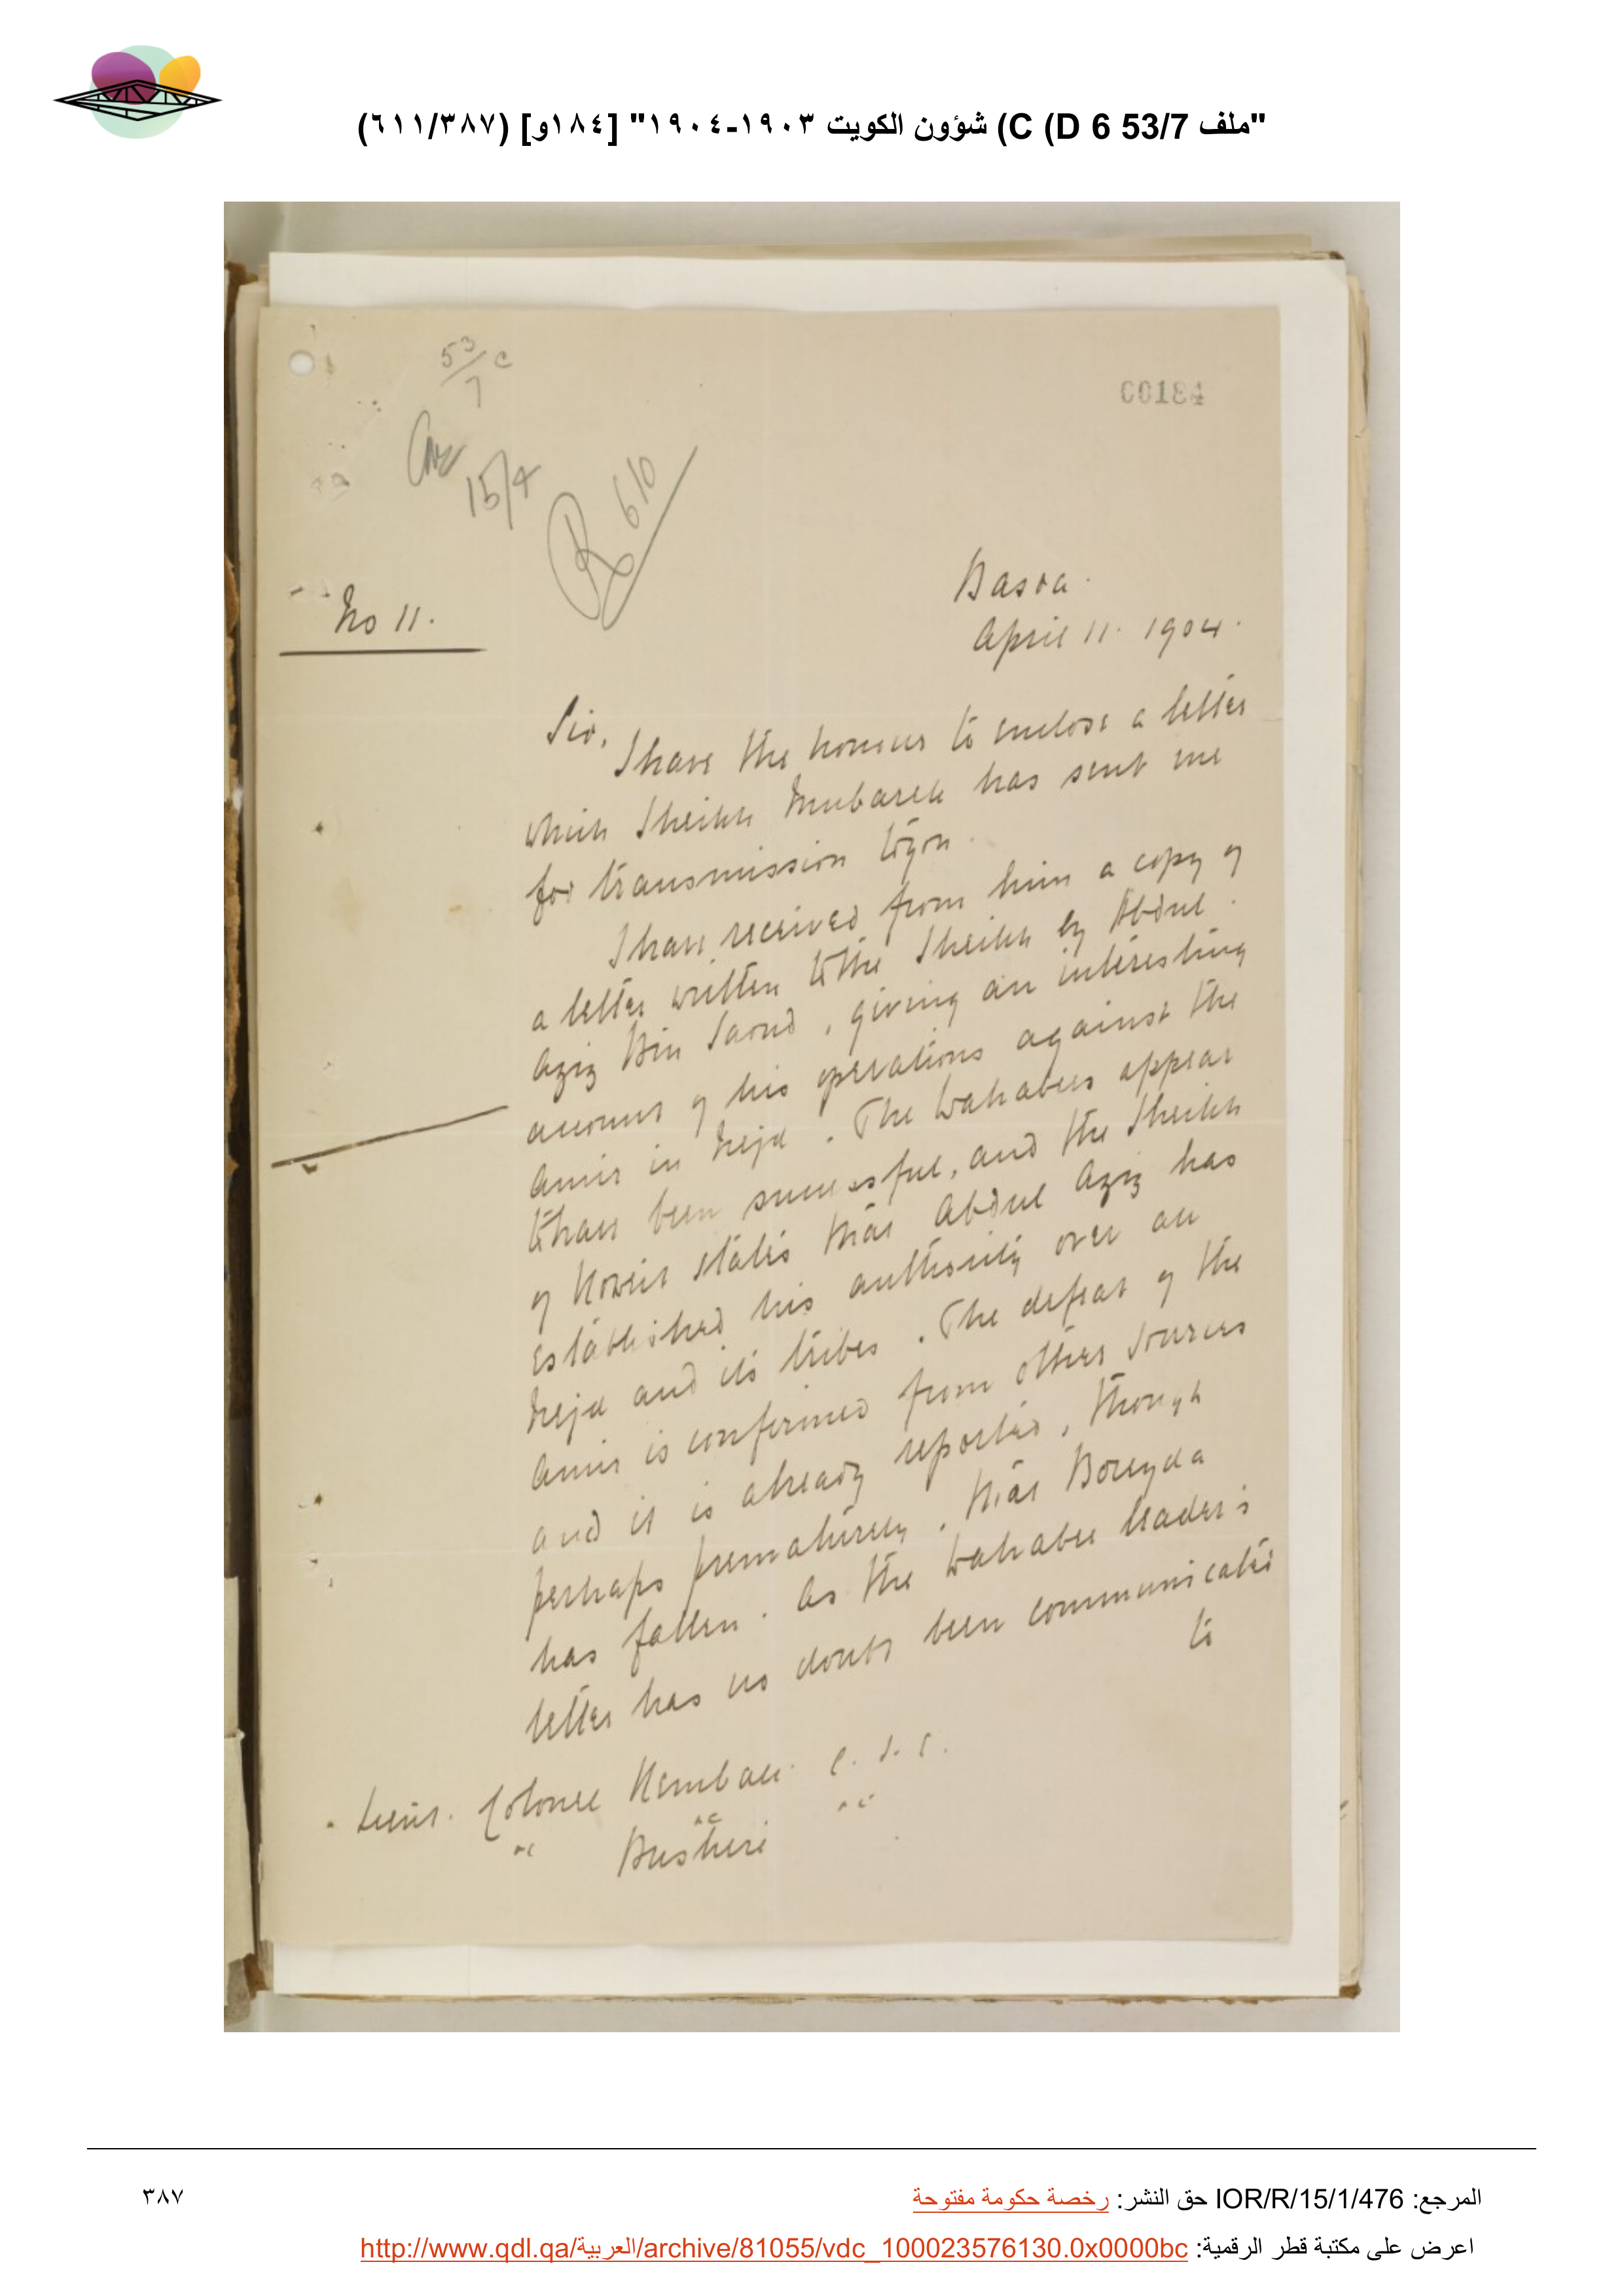 "ملف 53/7 D 6) C) شؤون الكويت ١٩٠٣-١٩٠٤" [١٨٤و] (٦١١/٣٨٧)
53/7 C
00184
15/4
R 610
No 11.
Basra.
April 11. 1904.
Sir,
I have the honour to enclose a letter
which Sheikh Mubarek has sent me
for transmission to you.
I have received from him a copy of
a letter written to the Sheikh by Abdul
Aziz Bin Saoud, giving an interesting
account of his operations against the
Amir in Nejd. The Wahabees appear
to have been successful, and the Sheikh
of Koweit states that Abdul Aziz has
established his authority over all
Nejd and its tribes. The defeat of the
Amir is confirmed from other sources
and it is already reported, though
perhaps prematurely, that Boreyda
has fallen. As the Wahabee leader's
letter has no doubt been communicated
to
Lieut. Colonel Kemball. C. I. E.
&c &c &c
Bushire
المرجع: IOR/R/15/1/476 حق النشر: رخصة حكومة مفتوحة
٣٨٧
اعرض على مكتبة قطر الرقمية: http://www.qdl.qa/العربية/archive/81055/vdc_100023576130.0x0000bc